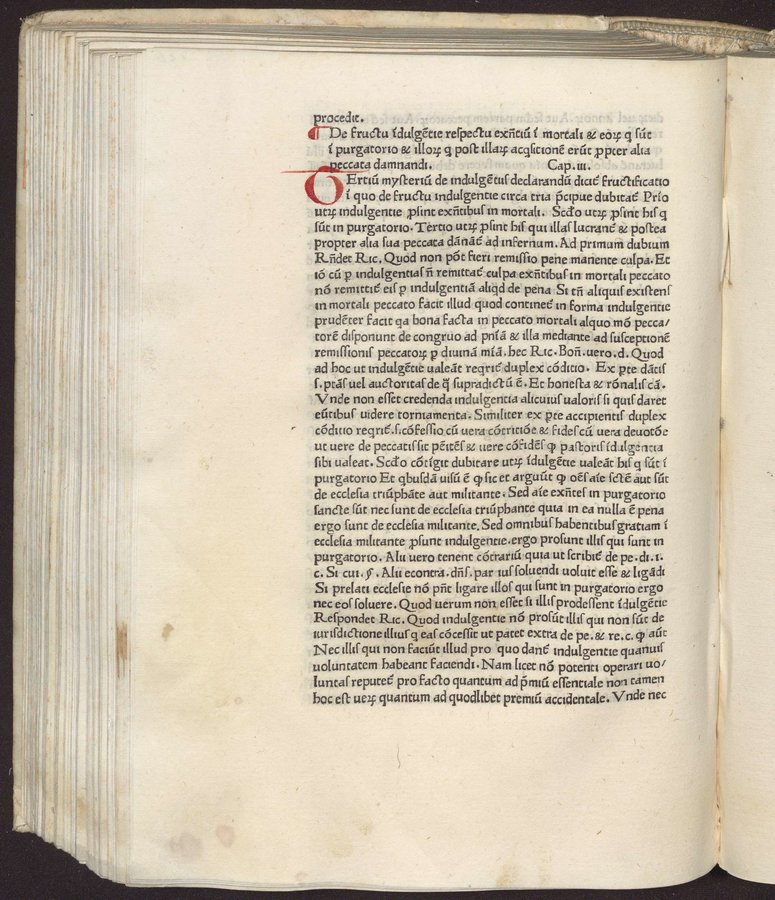 procedit.
¶ De fructu ĩdulgẽtie respectu exñtiũ ĩ mortali & eoꝝ q̃ sũt
ĩ purgatorio & illoꝝ q̃ post illaꝝ acq̃sitionẽ erũt ꝓpter alia
peccata damnandi. Cap. iii.
TErtiũ mysteriũ de indulgẽtiis declarandũ dicit̃ fructificatio
ĩ quo de fructu indulgentie circa tria p̃cipue dubitat̃ Prĩo
utꝝ indulgentie ꝓsint exñtibus in mortali. Sedo utꝝ ꝓsint his q̃
sũt in purgatorio. Tertio utꝝ ꝓsint his qui illas lucrant̃ & postea
propter alia sua peccata dãnant̃ ad infernum. Ad primum dubium
Rñdet Ric. Quod non põt fieri remissio pene manente culpa. Et
iõ cũ ꝑ indulgentias ñ remittat̃ culpa exñtibus in mortali peccato
nõ remittit̃ eis ꝑ indulgentiã aliq̃d de pena Si tñ aliquis existens
in mortali peccato facit illud quod continet̃ in forma indulgentie
prudẽter facit qa bona facta in peccato mortali aliquo mõ pecca/
torẽ disponunt de congruo ad pñiã & illa mediante ad susceptionẽ
remissionis peccatoꝝ ꝑ diuinã miã, hec Ric. Boñ. uero. d. Quod
ad hoc ut indulgẽtie ualeãt reqrit̃ duplex cõditio. Ex ꝑte dãtis
s. ptãs uel auctoritas de q̃ supradictũ ẽ. Et honesta & rõnalis cã.
Vnde non esset credenda indulgentia alicuius ualoris si quis daret
eũtibus uidere torniamenta. Similiter ex ꝑte accipientis duplex
cõditio reqrit̃. s. cõfessio cũ uera cõtritiõe & fides cũ uera deuotõe
ut uere de peccatis sit pẽitẽs & uere cõfidẽs ꝙ pastoris ĩdulgentia
sibi ualeat. Scdo cõtigit dubitare utꝝ ĩdulgẽtie ualeãt his q̃ sũt ĩ
purgatorio Et q̃busdã uisũ ẽ ꝙ sic et arguũt ꝙ oẽs aĩe sctẽ aut sũt
de ecclesia triũphãte aut militante. Sed aĩe exñtes in purgatorio
sancte sũt nec sunt de ecclesia triũphante quia in ea nulla ẽ pena
ergo sunt de ecclesia militante. Sed omnibus habentibus gratiam ĩ
ecclesia militante ꝓsunt indulgentie. ergo prosunt illis qui sunt in
purgatorio. Alii uero tenent cõtrariũ quia ut scribit̃ de pe. di. i.
c. Si cui. §. Alii econtra. dñs. par ius soluendi uoluit esse & ligãdi
Si prelati ecclesie nõ pñt ligare illos qui sunt in purgatorio ergo
nec eos soluere. Quod uerum non esset si illis prodessent ĩdulgẽtie
Respondet Ric. Quod indulgentie nõ prosũt illis qui non sũt de
iurisdictione illius q̃ eas cõcessit ut patet extra de pe. & re. c. ꝙ aũt
Nec illis qui non faciũt illud pro quo dant̃ indulgentie quanuis
uoluntatem habeant faciendi. Nam licet nõ potenti operari uo/
luntas reputet̃ pro facto quantum ad p̃miũ essentiale non tamen
hoc est ueꝝ quantum ad quodlibet premiũ accidentale. Vnde nec